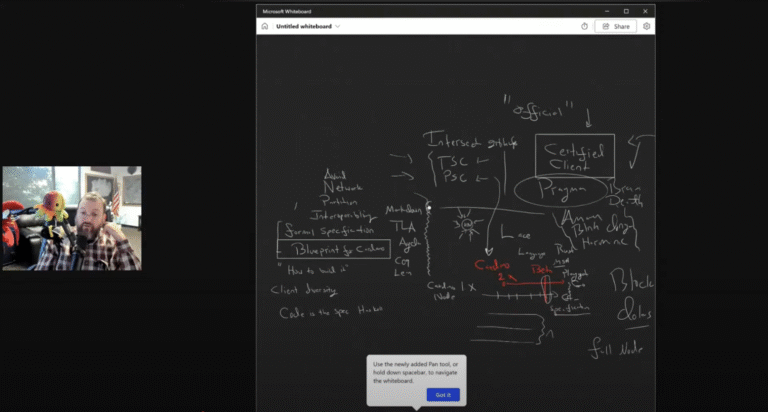 Microsoft Whiteboard
Untitled whiteboard
Share
"Official"
Intersect
TSC
PSC
Certified
Client
Pragma
Brain
Death
Avoid
Network
Partition
Interoperability
Formal Specification
Blueprint for Cardano
"How to build it"
Client diversity
Code is the spec Haskell
Markdown
TLA
Agda
Coq
Lean
Cardano 1x
Node
Lace
Language
Cardano
2
Specification
Harmonic
Block
full Node
Use the newly added Pan tool, or
hold down spacebar, to navigate
the whiteboard.
Got it